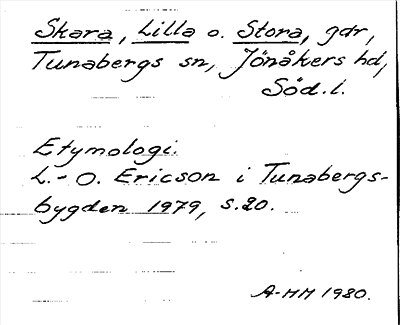 Skara, Lilla o. Stora, gdr,
Tunabergs sn, Jönåkers hd,
Söd.l.
Etymologi.
L.-O. Ericson i Tunabergs-
bygden 1979, s.20.
A-MM 1980.